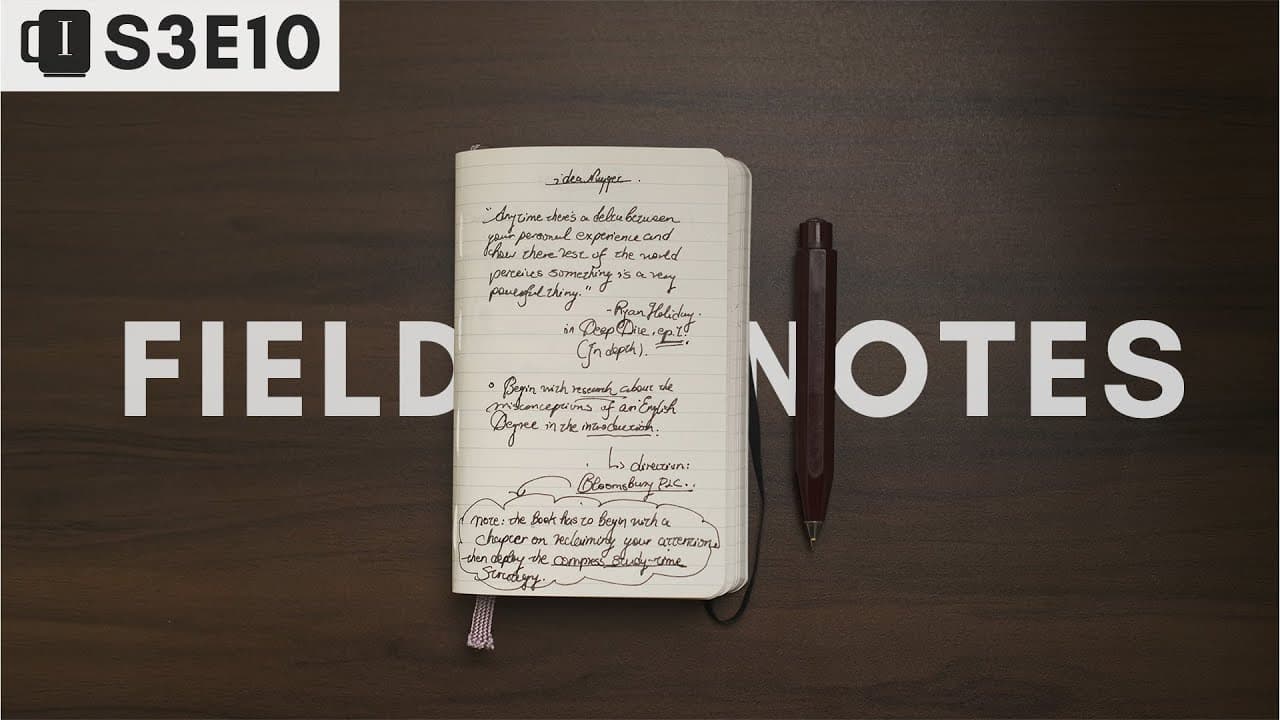 I S3E10
FIELD NOTES
idea
"Anytime there's a delta between
your personal experience and
how there rest of the world
perceives something is a very
powerful thing."
- Ryan Holiday.
in Deep Dive, ep.
(In depth).
Begin with research about the
misconceptions of an English
Degree in the introduction.
↳ direction:
Bloomsbury PLC..
note: the Book has to Begin with a
chapter on reclaiming your attention
then deploy the compress study-time
Strategy.